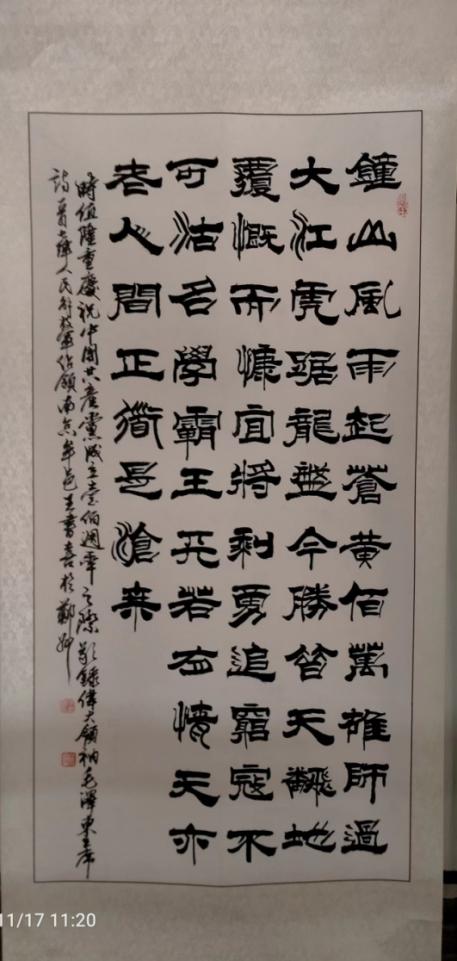 鐘山風雨起蒼黃佰萬雄師過
大江虎踞龍盤今勝昔天翻地
覆慨而慷宜將剩勇追窮寇不
可沽名學霸王天若有情天亦
老人間正道是滄桒
時值隆重慶祝中國共產黨成立壹佰週年之際敬錄偉大領袖毛澤東主席
詩一首七律人民解放軍佔領南京牟邑王書喜於鄭州
11/17 11:20